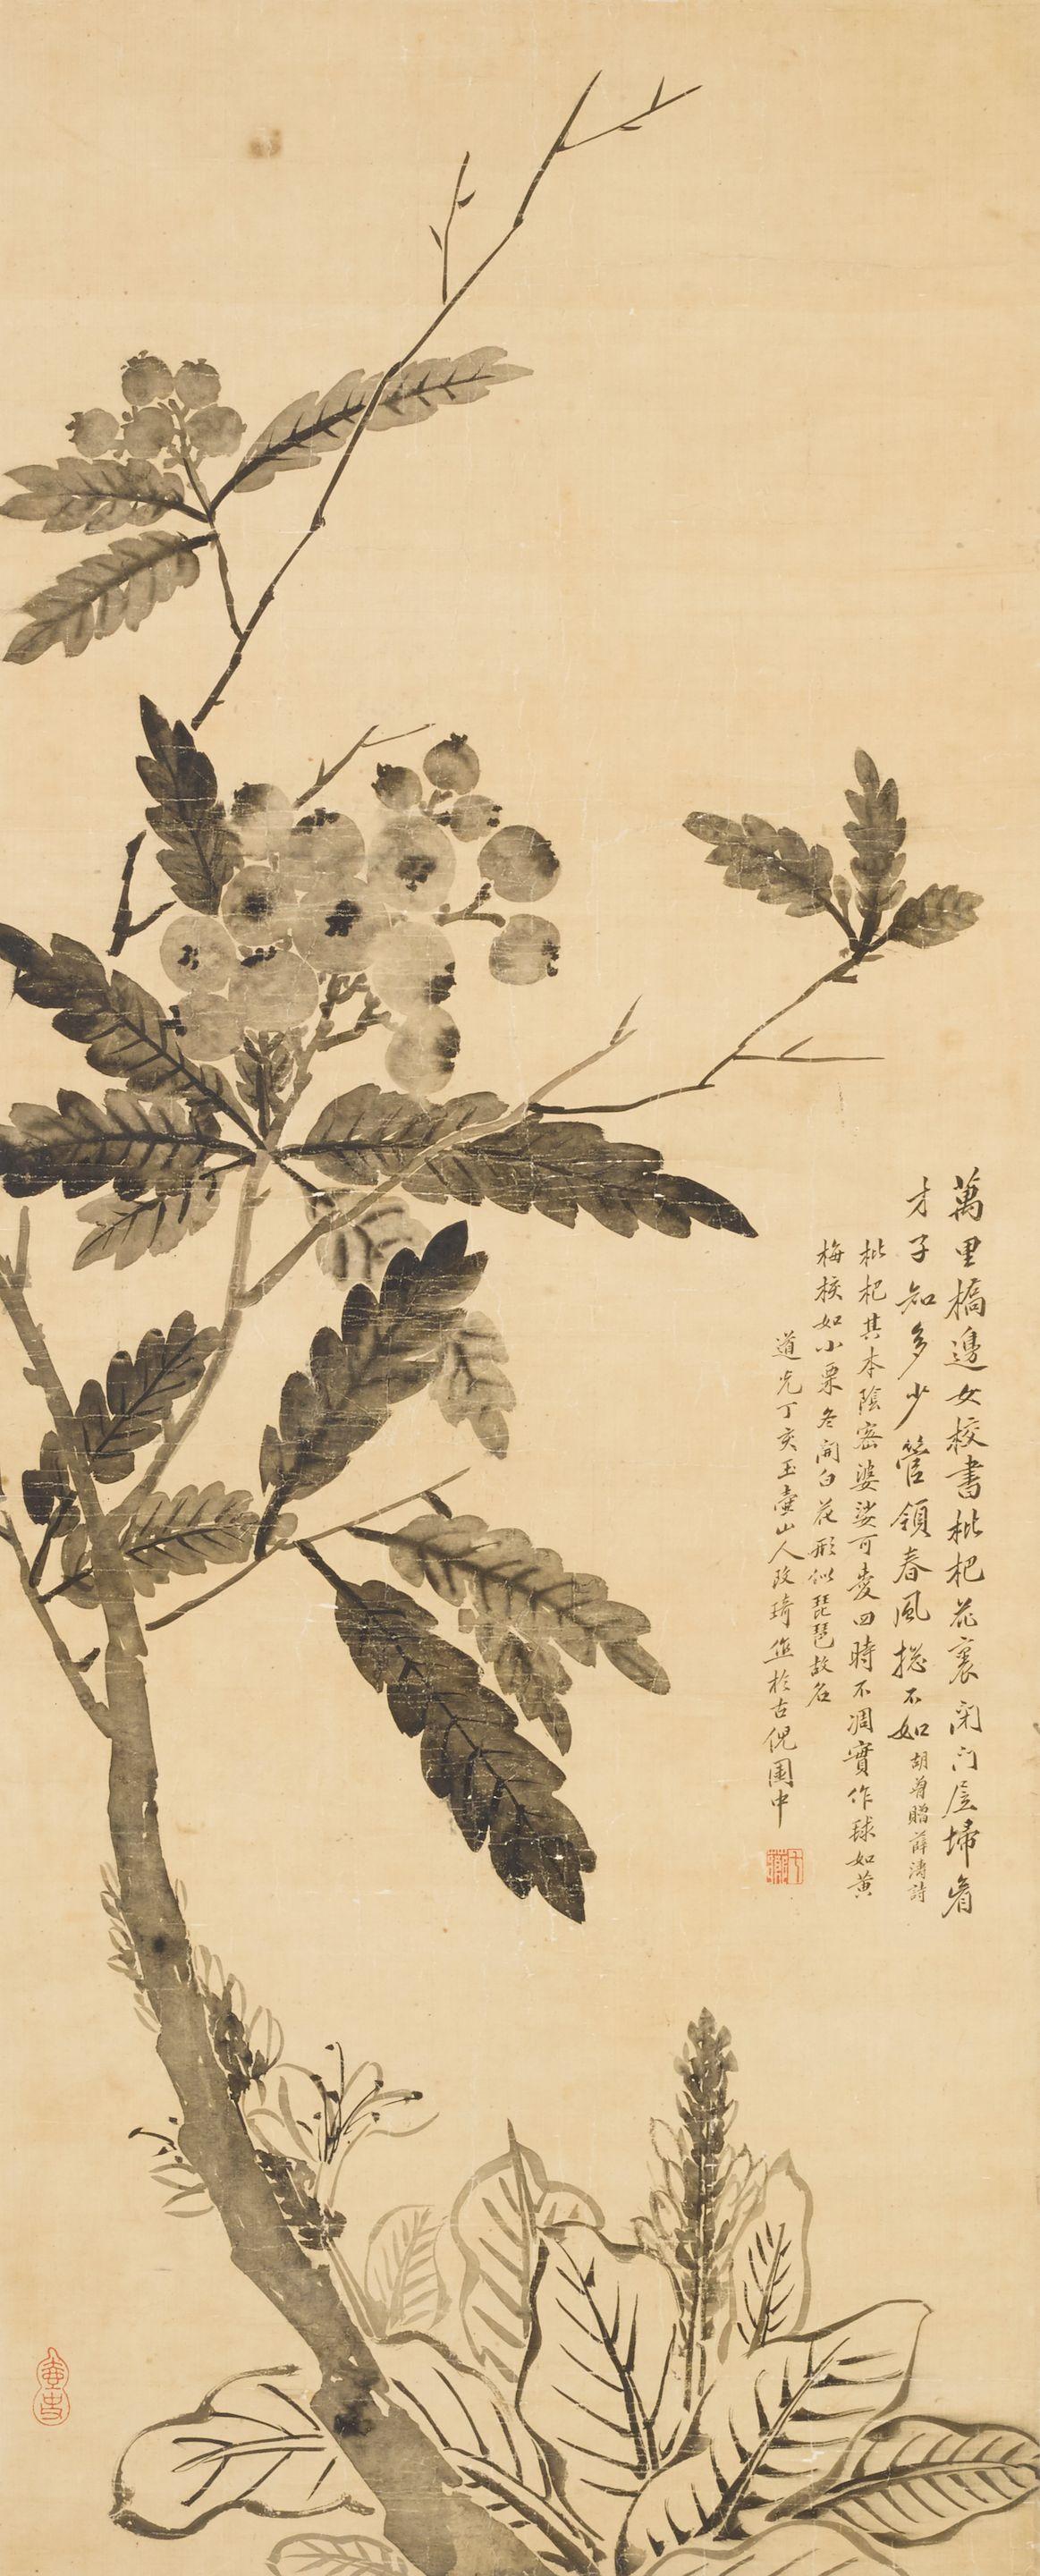 萬里橋邊女校書枇杷花裏閉門居掃眉
才子知多少管領春風揔不如胡曾贈薛濤詩
枇杷其木陰密婆娑可愛四時不凋實作球如黄
梅核如小栗冬開白花形似琵琶故名
道光丁亥玉壷山人改琦作於古倪園中